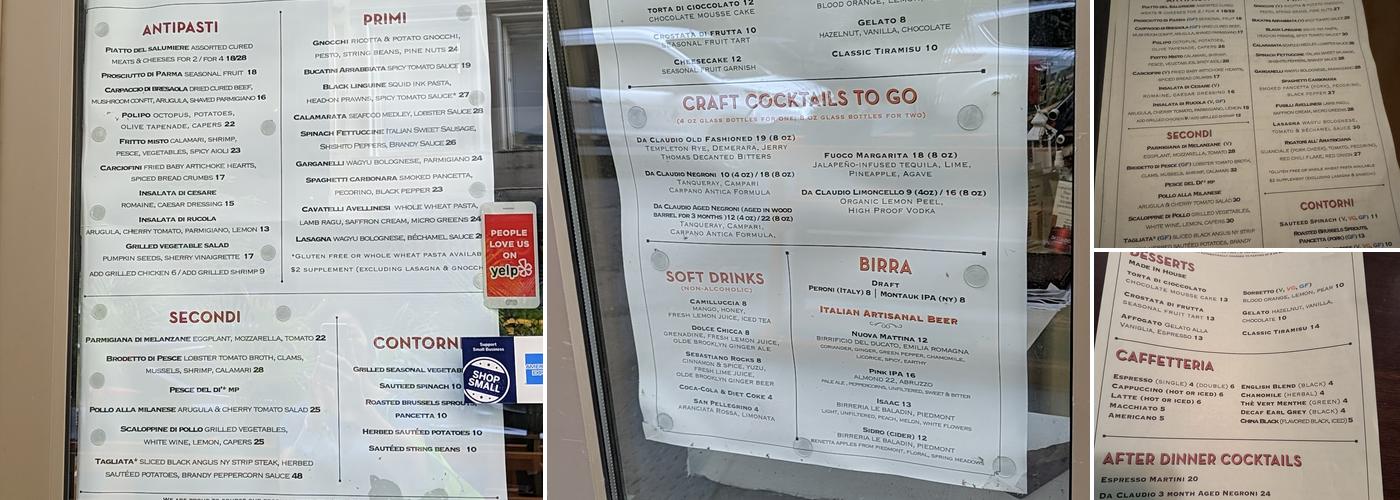 ANTIPASTI
PIATTO DEL SALUMIERE ASSORTED CURED
MEATS & CHEESES FOR 2 / FOR 4 18/28
PROSCIUTTO DI PARMA SEASONAL FRUIT 18
CARPACCIO DI BRESAOLA DRIED CURED BEEF,
MUSHROOM CONFIT, ARUGULA, SHAVED PARMIGIANO 16
POLIPO OCTOPUS, POTATOES,
OLIVE TAPENADE, CAPERS 22
FRITTO MISTO CALAMARI, SHRIMP,
PESCE, VEGETABLES, SPICY AIOLI 23
CARCIOFINI FRIED BABY ARTICHOKE HEARTS,
SPICED BREAD CRUMBS 17
INSALATA DI CESARE
ROMAINE, CAESAR DRESSING 15
INSALATA DI RUCOLA
ARUGULA, CHERRY TOMATO, PARMIGIANO, LEMON 13
GRILLED VEGETABLE SALAD
PUMPKIN SEEDS, SHERRY VINAIGRETTE 17
ADD GRILLED CHICKEN 6 / ADD GRILLED SHRIMP 9
PRIMI
GNOCCHI RICOTTA & POTATO GNOCCHI,
PESTO, STRING BEANS, PINE NUTS 24
BUCATINI ARRABBIATA SPICY TOMATO SAUCE 19
BLACK LINGUINE SQUID INK PASTA,
HEAD-ON PRAWNS, SPICY TOMATO SAUCE* 27
CALAMARATA SEAFOOD MEDLEY, LOBSTER SAUCE 28
SPINACH FETTUCCINE ITALIAN SWEET SAUSAGE,
SHISHITO PEPPERS, BRANDY SAUCE 26
GARGANELLI WAGYU BOLOGNESE, PARMIGIANO 24
SPAGHETTI CARBONARA SMOKED PANCETTA,
PECORINO, BLACK PEPPER 23
CAVATELLI AVELLINESI WHOLE WHEAT PASTA,
LAMB RAGU, SAFFRON CREAM, MICRO GREENS 24
LASAGNA WAGYU BOLOGNESE, BÉCHAMEL SAUCE
*GLUTEN FREE OR WHOLE WHEAT PASTA AVAILAB
$2 SUPPLEMENT (EXCLUDING LASAGNA & GNOCCH
PEOPLE
LOVE US
ON
yelp
SECONDI
PARMIGIANA DI MELANZANE EGGPLANT, MOZZARELLA, TOMATO 22
BRODETTO DI PESCE LOBSTER TOMATO BROTH, CLAMS,
MUSSELS, SHRIMP, CALAMARI 28
PESCE DEL DI'* MP
POLLO ALLA MILANESE ARUGULA & CHERRY TOMATO SALAD 25
SCALOPPINE DI POLLO GRILLED VEGETABLES,
WHITE WINE, LEMON, CAPERS 25
TAGLIATA* SLICED BLACK ANGUS NY STRIP STEAK, HERBED
SAUTÉED POTATOES, BRANDY PEPPERCORN SAUCE 48
CONTORN
GRILLED SEASONAL VEGETAB
SAUTEED SPINACH 10
ROASTED BRUSSELS SPROUTS,
PANCETTA 10
HERBED SAUTÉED POTATOES 10
SAUTÉED STRING BEANS 10
Support
Small Business
SHOP
SMALL
TORTA DI CIOCCOLATO 12
CHOCOLATE MOUSSE CAKE
CROSTATA DI FRUTTA 10
SEASONAL FRUIT TART
CHEESECAKE 12
SEASONAL FRUIT GARNISH
BLOOD ORANGE, LEMON,
GELATO 8
HAZELNUT, VANILLA, CHOCOLATE
CLASSIC TIRAMISU 10
CRAFT COCKTAILS TO GO
(4 OZ GLASS BOTTLES FOR ONE; 8 OZ GLASS BOTTLES FOR TWO)
DA CLAUDIO OLD FASHIONED 19 (8 OZ)
TEMPLETON RYE, DEMERARA, JERRY
THOMAS DECANTED BITTERS
DA CLAUDIO NEGRONI 10 (4 OZ) / 18 (8 OZ)
TANQUERAY, CAMPARI
CARPANO ANTICA FORMULA
DA CLAUDIO AGED NEGRONI (AGED IN WOOD
BARREL FOR 3 MONTHS) 12 (4 OZ) / 22 (8 OZ)
TANQUERAY, CAMPARI,
CARPANO ANTICA FORMULA,
FUOCO MARGARITA 18 (8 OZ)
JALAPEÑO-INFUSED TEQUILA, LIME,
PINEAPPLE, AGAVE
DA CLAUDIO LIMONCELLO 9 (4OZ) / 16 (8 OZ)
ORGANIC LEMON PEEL,
HIGH PROOF VODKA
SOFT DRINKS
(NON-ALCOHOLIC)
CAMILLUCCIA 8
MANGO, HONEY,
FRESH LEMON JUICE, ICED TEA
DOLCE CHICCA 8
GRENADINE, FRESH LEMON JUICE,
OLDE BROOKLYN GINGER ALE
SEBASTIANO ROCKS 8
CINNAMON & SPICE, YUZU,
FRESH LIME JUICE,
OLDE BROOKLYN GINGER BEER
COCA-COLA & DIET COKE 4
SAN PELLEGRINO 4
ARANCIATA ROSSA, LIMONATA
BIRRA
DRAFT
PERONI (ITALY) 8 | MONTAUK IPA (NY) 8
ITALIAN ARTISANAL BEER
NUOVA MATTINA 12
BIRRIFICIO DEL DUCATO, EMILIA ROMAGNA
CORIANDER, GINGER, GREEN PEPPER, CHAMOMILE,
LICORICE, SPICY, EARTHY
PINK IPA 16
ALMOND 22, ABRUZZO
PALE ALE, PEPPERCORNS, UNFILTERED, SWEET & BITTER
ISAAC 13
BIRRERIA LE BALADIN, PIEDMONT
LIGHT, UNFILTERED, PEACH, MELON, WHITE FLOWERS
SIDRO (CIDER) 12
BIRRERIA LE BALADIN, PIEDMONT
RENETTA APPLES FROM PIEDMONT, FLORAL, SPRING MEADOWS
PIATTO DEL SALUMIERE ASSORTED CURED
MEATS & CHEESES FOR 2 / FOR 4 18/28
PROSCIUTTO DI PARMA (GF) SEASONAL FRUIT 18
POLIPO OCTOPUS, POTATOES,
OLIVE TAPENADE, CAPERS 26
FRITTO MISTO CALAMARI, SHRIMP,
CARCIOFINI (V) FRIED BABY ARTICHOKE HEARTS,
SPICED BREAD CRUMBS 17
INSALATA DI CESARE (V)
ROMAINE, CAESAR DRESSING 16
INSALATA DI RUCOLA (V, GF)
ARUGULA, CHERRY TOMATO, PARMIGIANO, LEMON 15
SECONDI
PARMIGIANA DI MELANZANE (V)
EGGPLANT, MOZZARELLA, TOMATO 28
BRODETTO DI PESCE (GF) LOBSTER TOMATO BROTH,
CLAMS, MUSSELS, SHRIMP, CALAMARI 32
PESCE DEL DI'* MP
POLLO ALLA MILANESE
ARUGULA & CHERRY TOMATO SALAD 30
SCALOPPINE DI POLLO GRILLED VEGETABLES,
WHITE WINE, LEMON, CAPERS 30
TAGLIATA* (GF) SLICED BLACK ANGUS NY STRIP
STEAK, HERBED SAUTÉED POTATOES, BRANDY
GARGANELLI WAGYU BOLOGNESE, PARMIGIANO 28
SPAGHETTI CARBONARA
SMOKED PANCETTA (PORK), PECORINO,
BLACK PEPPER 27
FUSILLI AVELLINESI LAMB RAGU,
SAFFRON CREAM, MICRO GREENS 28
LASAGNA WAGYU BOLOGNESE,
TOMATO & BÉCHAMEL SAUCE 30
RIGATONI ALL'AMATRICIANA
GUANCIALE (PORK CHEEK), TOMATO, PECORINO,
RED CHILI FLAKE, RED ONION 27
*GLUTEN FREE OR WHOLE WHEAT PASTA AVAILABLE
$2 SUPPLEMENT (EXCLUDING LASAGNA & GNOCCHI)
CONTORNI
SAUTEED SPINACH (V, VG, GF) 11
ROASTED BRUSSELS SPROUTS,
PANCETTA (PORK) (GF) 13
DESSERTS
MADE IN HOUSE
TORTA DI CIOCCOLATO
CHOCOLATE MOUSSE CAKE 13
CROSTATA DI FRUTTA
SEASONAL FRUIT TART 13
AFFOGATO GELATO ALLA
VANIGLIA, ESPRESSO 13
SORBETTO (V, VG, GF)
BLOOD ORANGE, LEMON, PEAR 10
GELATO HAZELNUT, VANILLA,
CHOCOLATE 10
CLASSIC TIRAMISU 14
CAFFETTERIA
ESPRESSO (SINGLE) 4 (DOUBLE) 6
CAPPUCCINO (HOT OR ICED) 6
LATTE (HOT OR ICED) 6
MACCHIATO 5
AMERICANO 5
ENGLISH BLEND (BLACK) 4
CHAMOMILE (HERBAL) 4
THÈ VERT MENTHE (GREEN) 4
DECAF EARL GREY (BLACK) 4
CHINA BLACK (FLAVORED BLACK, ICED) 5
AFTER DINNER COCKTAILS
ESPRESSO MARTINI 20
DA CLAUDIO 3 MONTH AGED NEGRONI 24